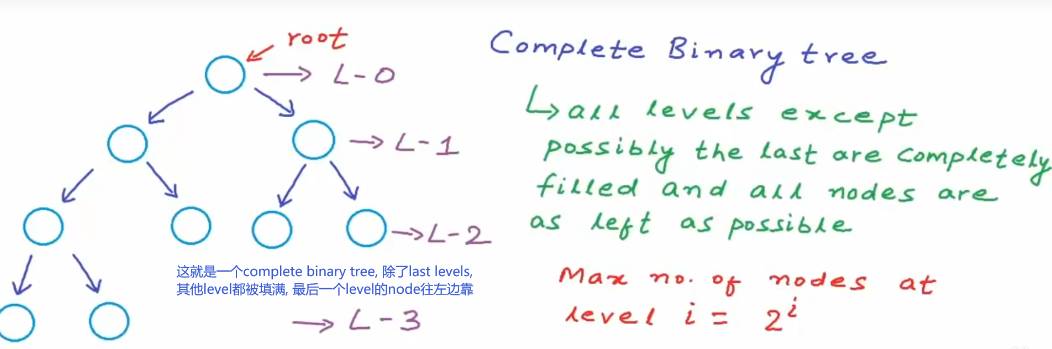 root
L-0
L-1
L-2
这就是一个complete binary tree, 除了last levels,
其他level都被填满, 最后一个level的node往左边靠
L-3
Complete Binary tree
all levels except
possibly the last are completely
filled and all nodes are
as left as possible
Max no. of nodes at
level i = 2^i